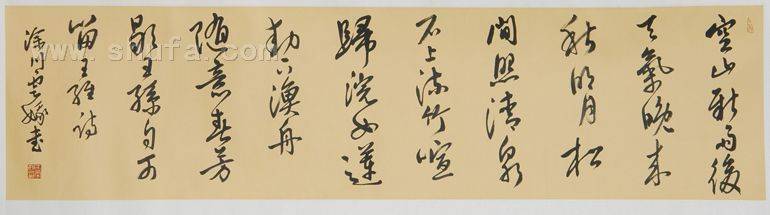 空山新雨後
天氣晚来
秋明月松
間照清泉
石上流竹喧
歸浣女蓮
動下漁舟
隨意春芳
歇王孫自可
留王維詩
www.shufa.com